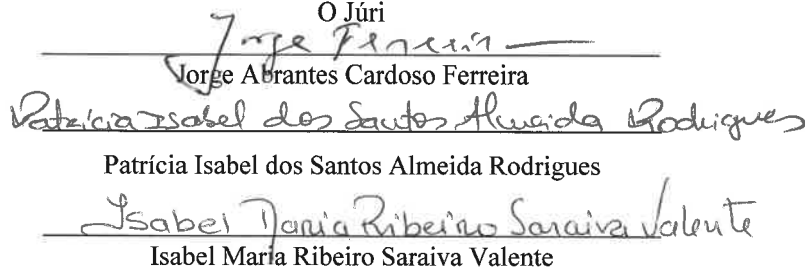 O Júri
Jorge Ferreira
Jorge Abrantes Cardoso Ferreira
Patrícia Isabel dos Santos Almeida Rodrigues
Patrícia Isabel dos Santos Almeida Rodrigues
Isabel Maria Ribeiro Saraiva Valente
Isabel Maria Ribeiro Saraiva Valente